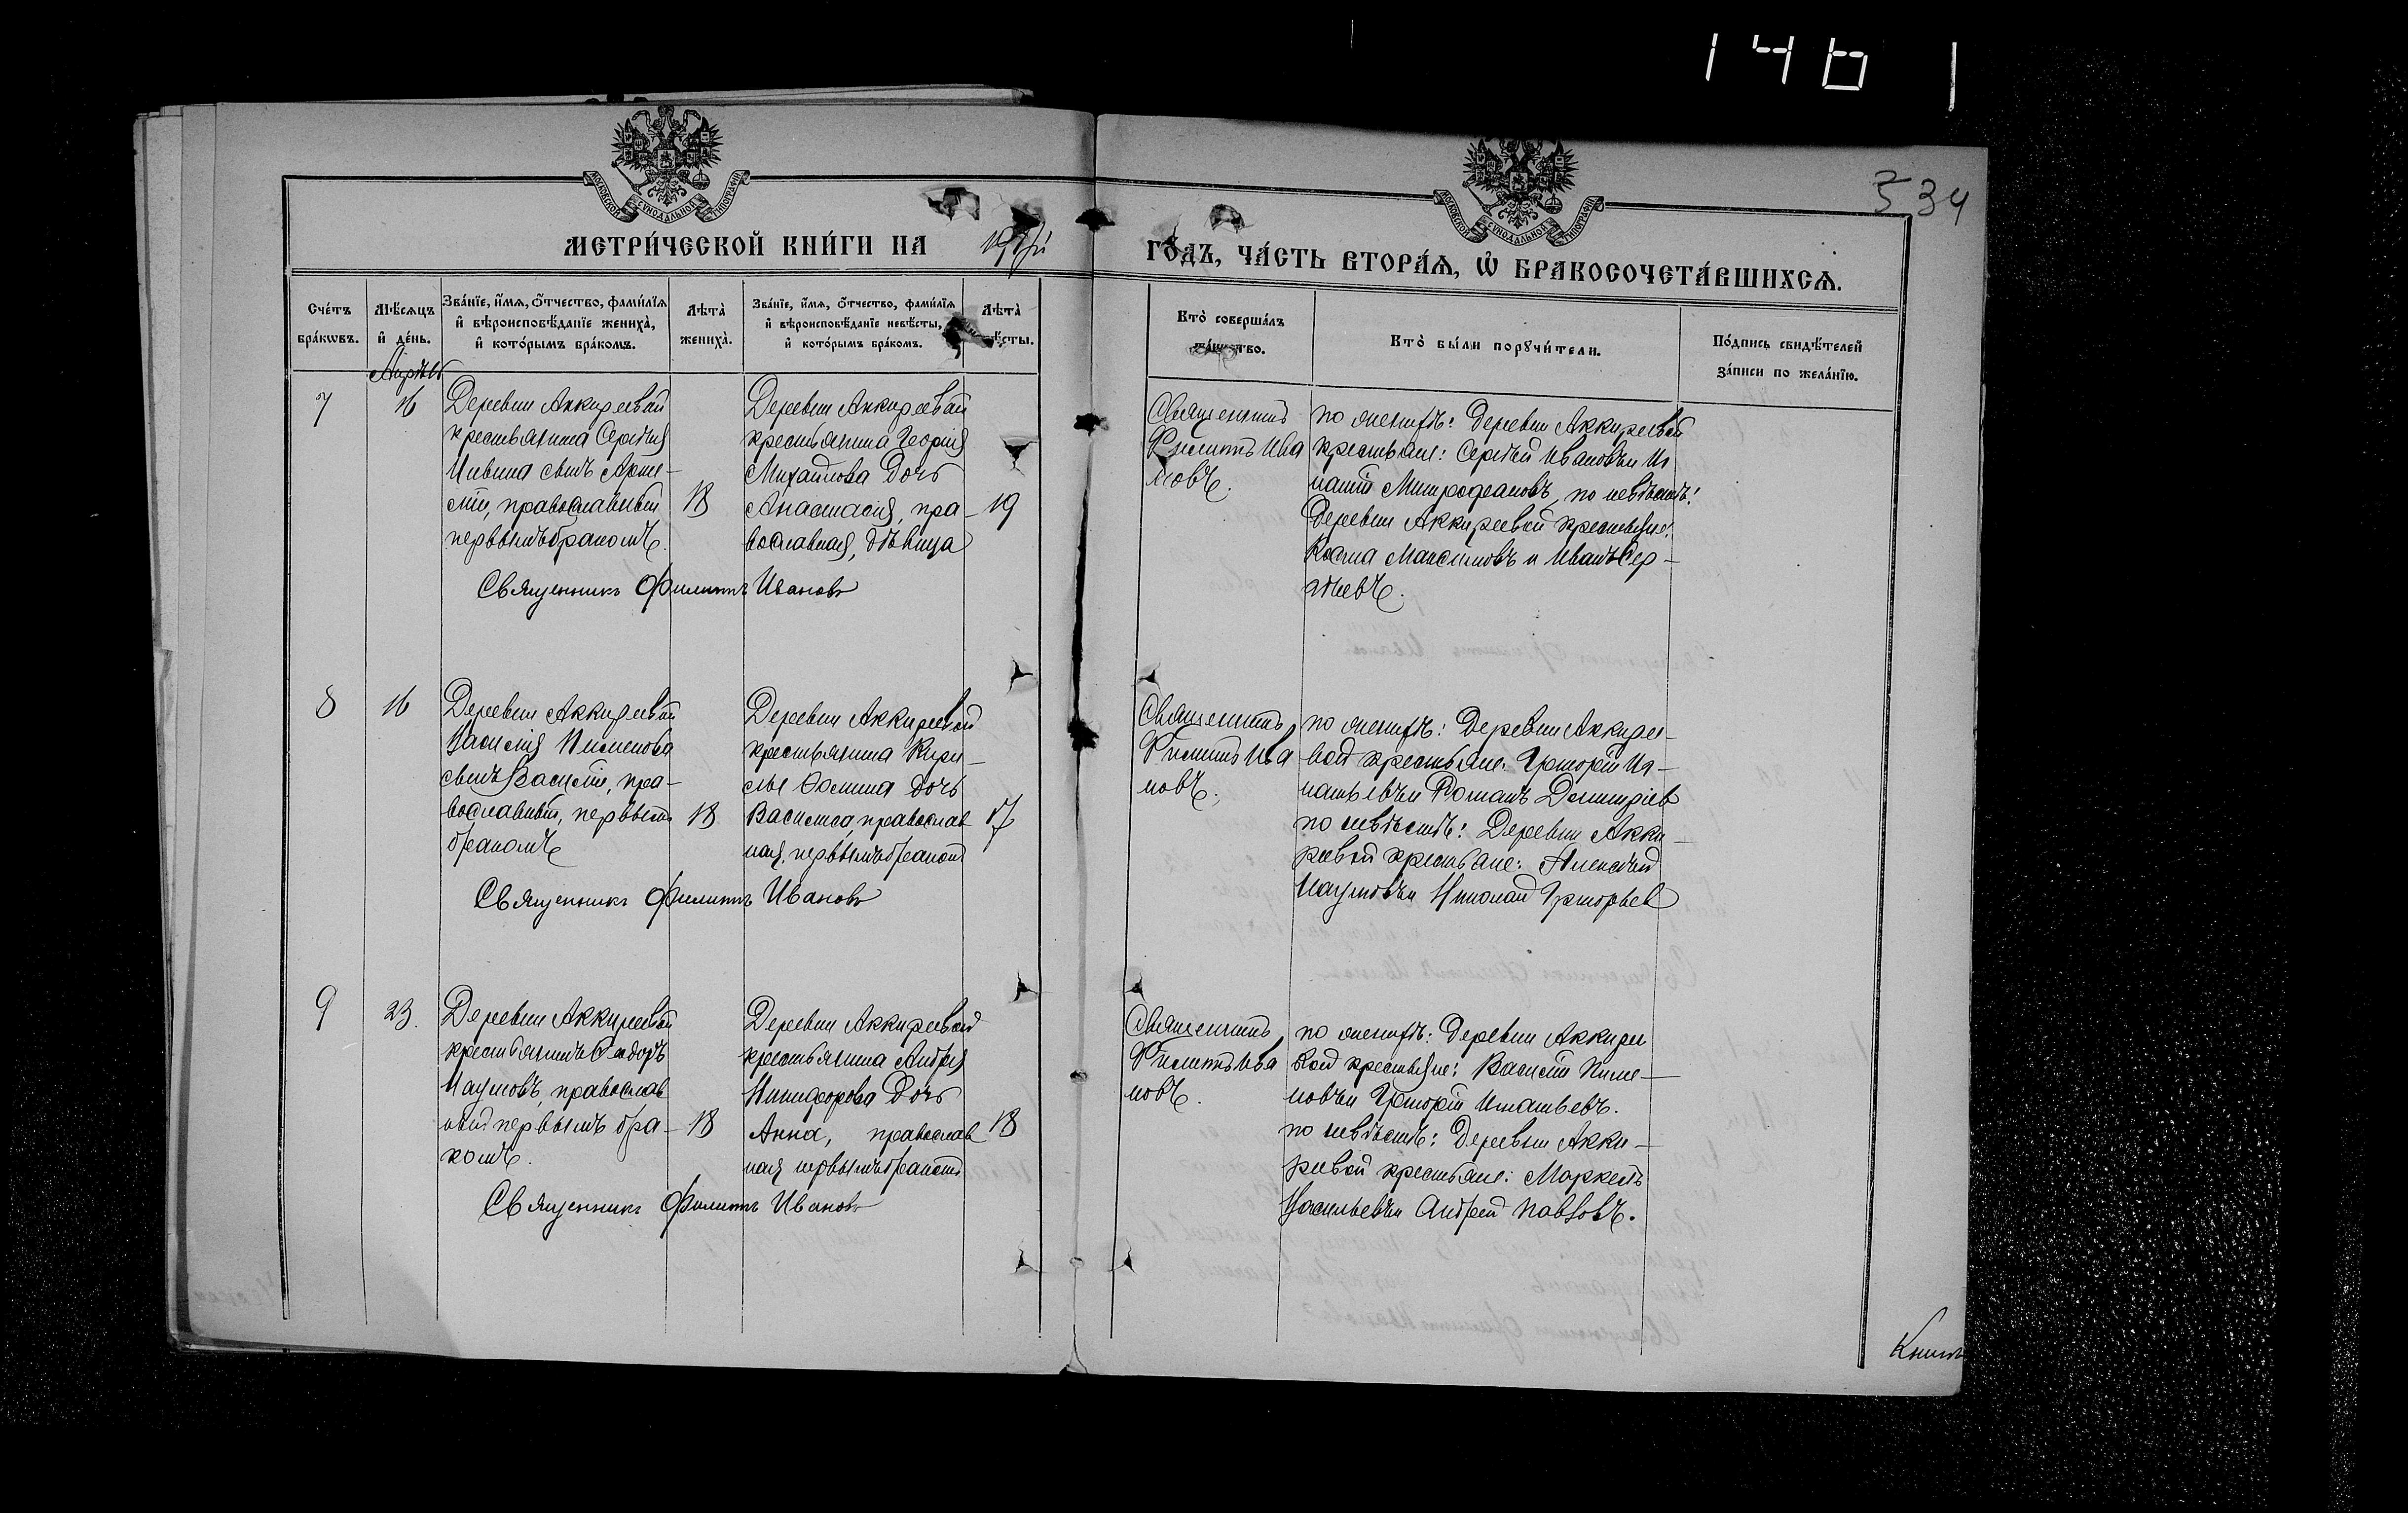 1461
534
МОСКОВСКОЙ СУНОДАЛЬНОЙ ТИПОГРАФІИ
МОСКОВСКОЙ СУНОДАЛЬНОЙ ТИПОГРАФІИ
МЕТРИ́ЧЕСКОЙ КНИ́ГИ НА
ГО́ДЪ, ЧА́СТЬ ВТОРА́Ѧ, Ѽ БРАКОСОЧЕТА́ВШИХСѦ.
Сче́тъ бра́кѡвъ.
Мѣ́сѧцъ и҆ де́нь.
Зва́нїе, и҆́мѧ, ѻ҆́тчество, фами́лїѧ и҆ вѣроисповѣ́данїе жениха̀, и҆ кото́рымъ бра́комъ.
Лѣта̀ жениха̀.
Зва́нїе, и҆́мѧ, ѻ҆́тчество, фами́лїѧ и҆ вѣроисповѣ́данїе невѣ́сты, и҆ кото́рымъ бра́комъ.
Лѣта̀ невѣ́сты.
Кто̀ соверша́лъ та́инство.
Кто̀ бы́ли порꙋчи́тели.
По́дпись свидѣ́телей за́писи по жела́нїю.
Апрѣль
7
16
Деревни Аккиреевой
крестьянина Сергѣя
сынъ
православный
первымъ бракомъ.
18
Деревни Аккиреевой
крестьянина Георгія
Михайлова дочь
Анастасія, пра-
вославная, дѣвица
19
Священникъ
Филиппъ Ива
новъ.
по женихѣ: Деревни Аккиреевой
крестьяне: Сергѣй Ивановъ и Иг
натій Митрофановъ, по невѣстѣ:
Деревни Аккиреевой крестьяне:
Косма Максимовъ и Иванъ Сер-
гѣевъ.
Священникъ Филиппъ Ивановъ
8
16
Деревни Аккиреевой
Василія Пименова
сынъ Василій, пра-
вославный, первымъ
бракомъ
18
Деревни Аккиреевой
крестьянина Кири-
лы Ѳомина дочь
Василиса, православ
ная, первымъ бракомъ
17
Священникъ
Филиппъ Ива
новъ.
по женихѣ: Деревни Аккире-
вой крестьяне: Григорій Иг-
натьевъ и Романъ Димитріев
по невѣстѣ: Деревни Акки-
реевой крестьяне: Алексѣй
Наумовъ и Николай Григорьев
Священникъ Филиппъ Ивановъ
9
23.
Деревни Аккиреевой
крестьянинъ Ѳедоръ
Наумовъ, православ
ный первымъ бра-
комъ.
18
Деревни Аккиреевой
крестьянина Андрея
Никифорова дочь
Анна, православ
ная первымъ бракомъ
18
Священникъ
Филиппъ Ива
новъ.
по женихѣ: Деревни Аккире
вой крестьяне: Василій Пиме-
новъ и Григорій Игнатьевъ.
по невѣстѣ: Деревни Акки-
реевой крестьяне: Маркелъ
Васильевъ и Андрей Павловъ.
Священникъ Филиппъ Ивановъ